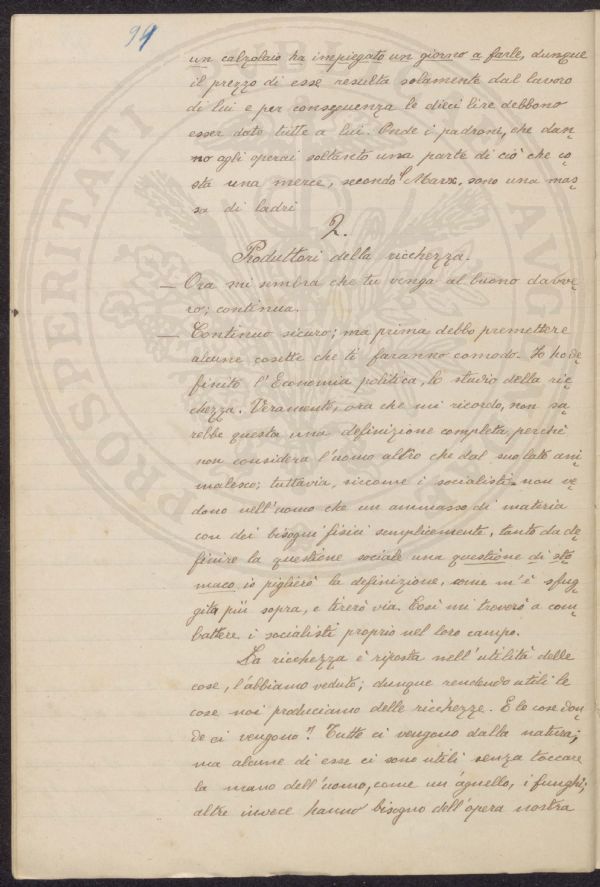 94
un calzolaio ha impiegato un giorno a farle, dunque
il prezzo di esse resulta solamente dal lavoro
di lui e per conseguenza le dieci lire debbono
esser dato tutte a lui. Onde i padroni, che dan-
no agli operai soltanto una parte di ciò che co-
sta una merce, secondo Marx, sono una mas-
sa di ladri
2.
Produttori della ricchezza.
— Ora mi sembra che tu venga al buono davve-
ro; continua.
— Continuo sicuro; ma prima debbo premettere
alcune cosette che ti faranno comodo. Io ho de-
finito l'Economia politica, lo studio della ric-
chezza. Veramente, ora che mi ricordo, non sa-
rebbe questa una definizione completa, perchè
non considera l'uomo altro che dal suo lato ani-
malesco; tuttavia, siccome i socialisti non ve-
dono nell'uomo che un ammasso di materia
con dei bisogni fisici semplicemente, tanto da de-
finire la questione sociale una questione di sto-
maco io piglierò la definizione, come m'è sfug-
gita più sopra, e tirerò via. Così mi troverò a com-
battere i socialisti proprio nel loro campo.
La ricchezza è riposta nell'utilità delle
cose, l'abbiamo veduto; dunque rendendo utili le
cose noi produciamo delle ricchezze. E le cose don-
de ci vengono? Tutte ci vengono dalla natura;
ma alcune di esse ci sono utili senza toccare
la mano dell'uomo, come un agnello, i funghi;
altre invece hanno bisogno dell'opera nostra
PROSPERITATI AVG